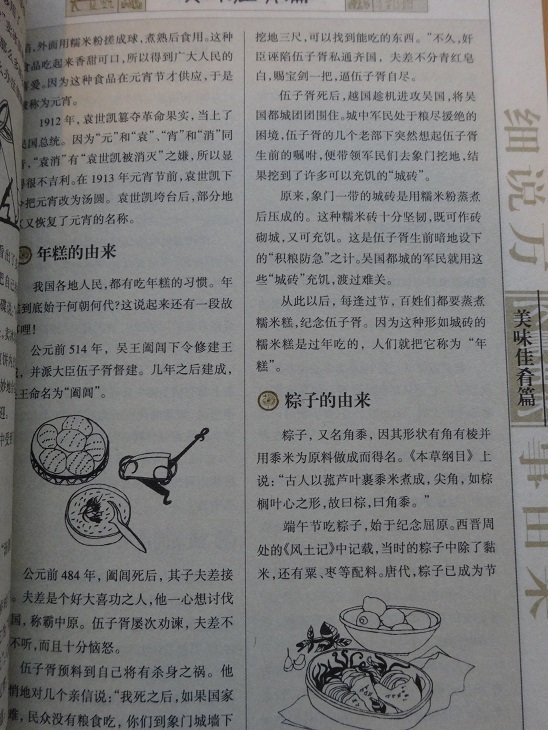 外面用糯米粉搓成球，煮熟后食用。这种
食品吃起来香甜可口，所以得到广大人民的
喜爱。因为这种食品在元宵节才供应，于是
被称为元宵。
1912年，袁世凯篡夺革命果实，当上了
民国总统。因为“元”和“袁”、“宵”和“消”同
音，“袁消”有“袁世凯被消灭”之嫌，所以显
得很不吉利。在1913年元宵节前，袁世凯下
令把元宵改为汤圆。袁世凯垮台后，部分地
区又恢复了元宵的名称。
年糕的由来
我国各地人民，都有吃年糕的习惯。年
糕到底始于何朝何代？这说起来还有一段故
事哩！
公元前514年，吴王阖闾下令修建王
城，并派大臣伍子胥督建。几年之后建成，
王命名为“阖闾”。
公元前484年，阖闾死后，其子夫差接
夫差是个好大喜功之人，他一心想讨伐
国，称霸中原。伍子胥屡次劝谏，夫差不
不听，而且十分恼怒。
伍子胥预料到自己将有杀身之祸。他
悄地对几个亲信说：“我死之后，如果国家
难，民众没有粮食吃，你们到象门城墙下
挖地三尺，可以找到能吃的东西。”不久，奸
臣诬陷伍子胥私通齐国，夫差不分青红皂
白，赐宝剑一把，逼伍子胥自尽。
伍子胥死后，越国趁机进攻吴国，将吴
国都城团团围住。城中军民处于粮尽援绝的
困境，伍子胥的几个老部下突然想起伍子胥
生前的嘱咐，便带领军民们去象门挖地，结
果挖到了许多可以充饥的“城砖”。
原来，象门一带的城砖是用糯米粉蒸煮
后压成的。这种糯米砖十分坚韧，既可作砖
砌城，又可充饥。这是伍子胥生前暗地设下
的“积粮防急”之计。吴国都城的军民就用这
些“城砖”充饥，渡过难关。
从此以后，每逢过节，百姓们都要蒸煮
糯米糕，纪念伍子胥。因为这种形如城砖的
糯米糕是过年吃的，人们就把它称为“年
糕”。
粽子的由来
粽子，又名角黍，因其形状有角有棱并
用黍米为原料做成而得名。《本草纲目》上
说：“古人以菰芦叶裹黍米煮成，尖角，如棕
榈叶心之形，故曰粽，曰角黍。”
端午节吃粽子，始于纪念屈原。西晋周
处的《风土记》中记载，当时的粽子中除了黏
米，还有粟、枣等配料。唐代，粽子已成为节
细说万
事由来
美味佳肴篇